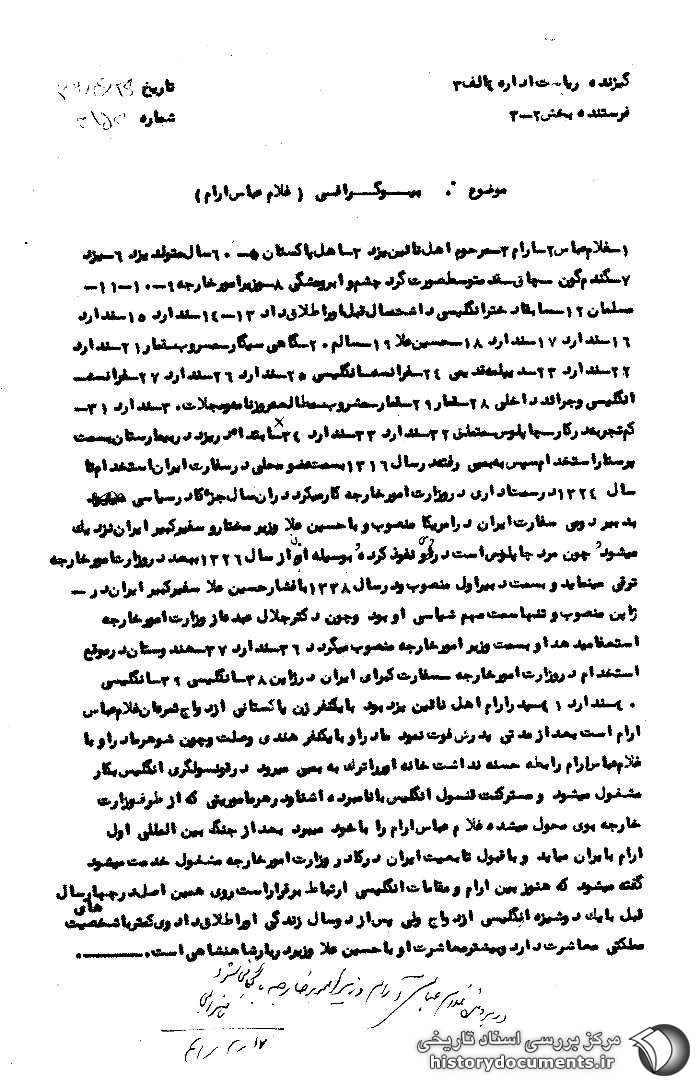 گیرنده ریاست اداره یکالف ۳
تاریخ
فرستنده بخش ۲-۳
شماره
موضوع . بیوگرافی (غلام عباس ارام)
۱-غلام عباس ۲-ارام ۳-مرحوم اهل نائین یزد ۴-اهل پاکستان ۵-۶۰ سال متولد یزد ۶-یزد
۷-گندم گون - چاق - قد متوسط صورت گرد چشم و ابرو مشکی ۸-وزیر امور خارجه ۹-۱۰-۱۱-
مسلمان ۱۲-سابقا دختر انگلیسی داشت سال قبل اورا طلاق داد ۱۳-۱۴-ندارد ۱۵-ندارد
۱۶-ندارد ۱۷-ندارد ۱۸-حسین علا ۱۹-سالم ۲۰-گاهی سیگار مشروب قمار ۲۱-ندارد
۲۲-ندارد ۲۳-دیپلمه قدیمی ۲۴-فرانسه انگلیسی ۲۵-ندارد ۲۶-ندارد ۲۷-فرانسه
انگلیسی و جرائد داخلی ۲۸-قمار ۲۹-قمار مشروب مطالعه روزنامه و مجلات ۳۰-ندارد ۳۱-
کم تجربه در کار چاپلوس متملق ۳۲-ندارد ۳۳-ندارد ۳۴-ابتدا در یزد در بیمارستان بسمت
پرستار استخدام سپس به بمبی رفته در سال ۱۳۱۶ بسمت عضو محلی در سفارت ایران استخدام تا
سال ۱۳۲۴ در سمت اداری در وزارت امور خارجه کار میکرد در ان سال جز کادر سیاسی
به دبیر دومی سفارت ایران در امریکا منصوب و با حسین علا وزیر مختار و سفیر کبیر ایران نزدیک
میشود چون مرد چاپلوس است در وی نفوذ کرده و بوسیله او از سال ۱۳۲۶ ببعد در وزارت امور خارجه
ترقی مینماید و بسمت دبیر اول منصوب و در سال ۱۳۳۸ با فشار حسین علا سفیر کبیر ایران در -
ژاپن منصوب و تنها سمت مهم سیاسی او بود وچون دکتر جلال عبده از وزارت امور خارجه
استعفا میدهد او بسمت وزیر امور خارجه منصوب میگردد ۳۶-ندارد ۳۷-هندوستان در موقع
استخدام در وزارت امور خارجه - سفارت کبرای ایران در ژاپن ۳۸-انگلیسی ۳۹-انگلیسی
۴۰-ندارد ۴۱-پدر ارام اهل نائین یزد بود با یکنفر زن پاکستانی ازدواج ثمره ان غلام عباس
ارام است بعد از مدتی پدرش فوت نمود مادر او با یکنفر هندی وصلت وچون شوهر مادر او با
غلام عباس ارام رابطه حسنه نداشت خانه اورا ترک به بمبی میرود در قونسولگری انگلیس بکار
مشغول میشود و مستر کنت قنسول انگلیس با نامبرده اشنا و در هر ماموریتی که از طرف وزارت
خارجه بوی محول میشده غلام عباس ارام را باخود میبرد بعد از جنگ بین المللی اول
ارام بایران میاید و با قبول تابعیت ایران در کادر وزارت امور خارجه مشغول خدمت میشود
گفته میشود که هنوز بین ارام و مقامات انگلیسی ارتباط برقرار است روی همین اصل در چهار سال
قبل با یک دوشیزه انگلیسی ازدواج ولی پس از دو سال زندگی اورا طلاق داد وی کمتر با شخصیت های
مملکتی معاشرت دارد و بیشتر معاشرت او با حسین علا وزیر دربار شاهنشاهی است.
در پرونده غلام عباس آرام وزیر امور خارجه بایگانی شود
مرکز بررسی اسناد تاریخی
historydocuments.ir